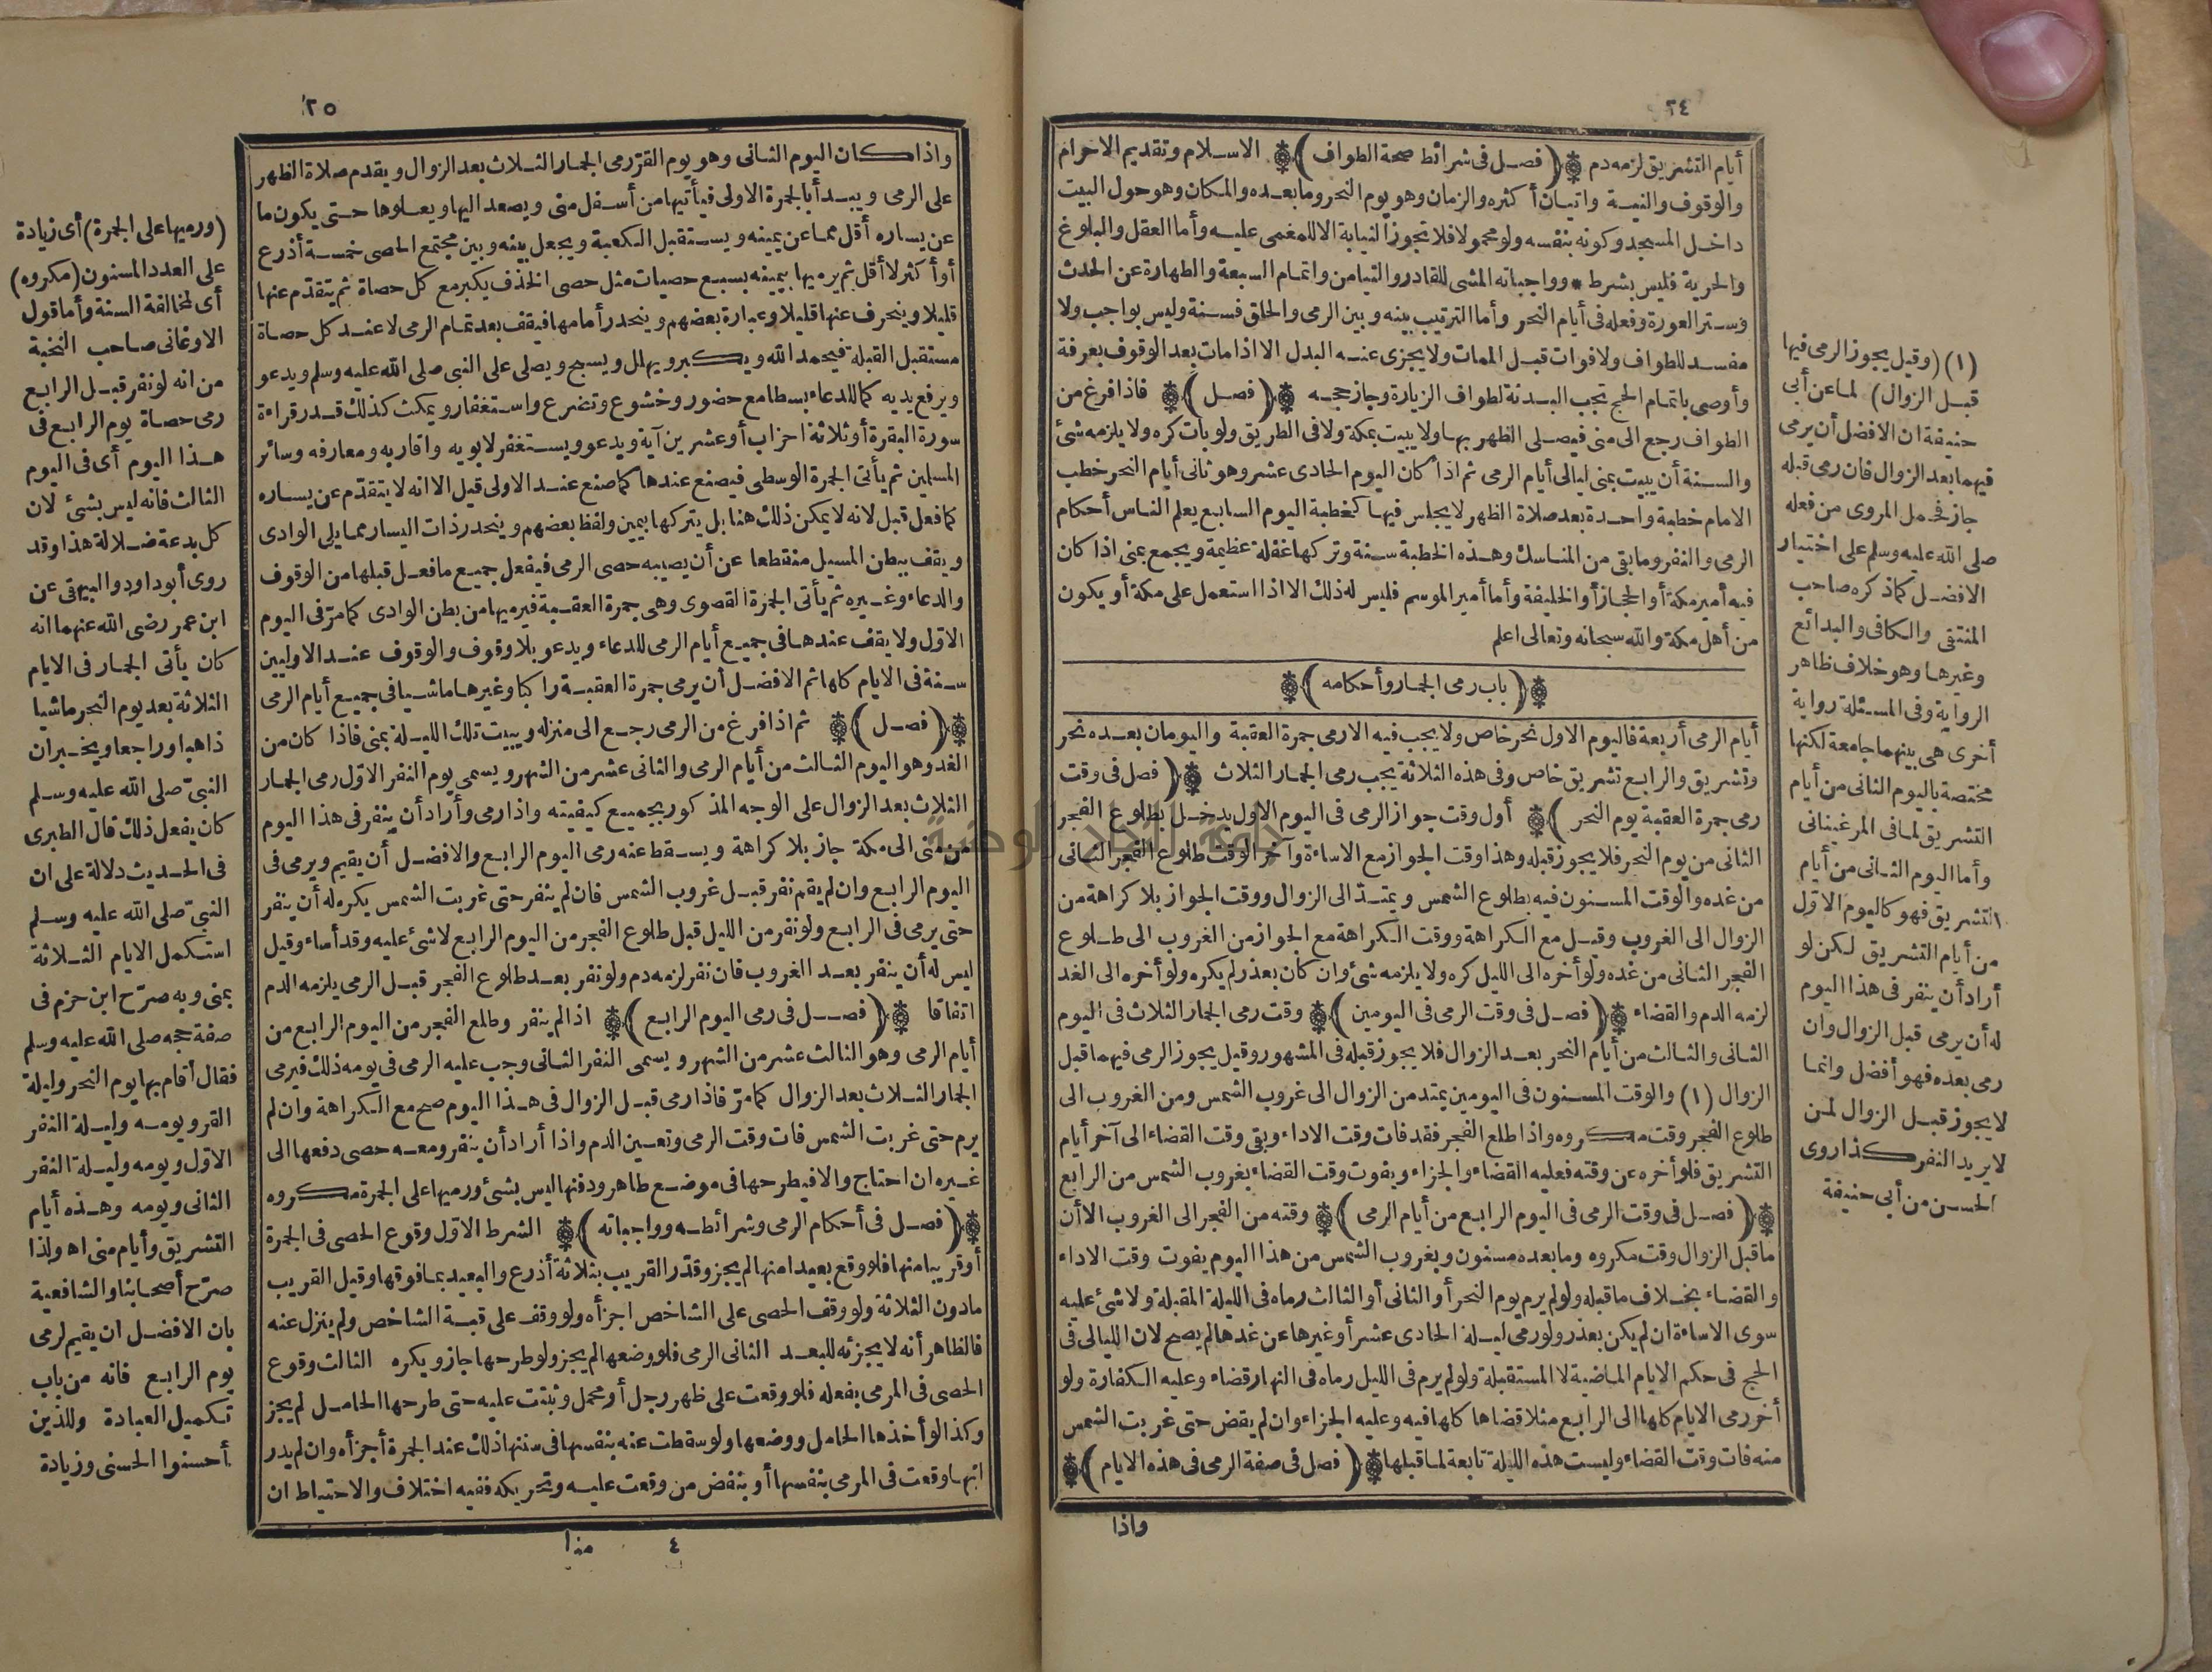 ٢٤
أيام التشريق لزمه دم ﴿ فصل فى شرائط صحة الطواف ﴾ الاسلام وتقديم الاحرام
والوقوف والنية واتيان أكثره والزمان وهو يوم النحر وما بعده والمكان وهو حول البيت
داخل المسجد وكونه بنفسه ولو محمولا فلا تجوز النيابة الا للمغمى عليه وأما العقل والبلوغ
والحرية فليس بشرط * وواجباته المشى للقادر والتيامن واتمام السبعة والطهارة عن الحدث
وستر العورة وفعله فى أيام النحر وأما الترتيب بينه وبين الرمى والحلق فسنة وليس بواجب ولا
مفسد للطواف ولا فوات قبل الممات ولا يجزى عنه البدل الا اذا مات بعد الوقوف بعرفة
وأوصى باتمام الحج تجب البدنة لطواف الزيارة وجاز حجه ﴿ فصل ﴾ فاذا فرغ من
الطواف رجع الى منى فيصلى الظهر بها ولا يبيت بمكة ولا فى الطريق ولو بات كره ولا يلزمه شئ
والسنة أن يبيت بمنى ليالى أيام الرمى ثم اذا كان اليوم الحادى عشر وهو ثانى أيام النحر خطب
الامام خطبة واحدة بعد صلاة الظهر لا يجلس فيها كخطبة اليوم السابع يعلم الناس أحكام
الرمى والنفر وما بقى من المناسك وهذه الخطبة سنة وتركها غفلة عظيمة ويجمع بمنى اذا كان
فيه أمير مكة أو الحجاز أو الخليفة وأما أمير الموسم فليس له ذلك الا اذا استعمل على مكة أو يكون
من أهل مكة والله سبحانه وتعالى اعلم
﴿ باب رمى الجمار وأحكامه ﴾
أيام الرمى أربعة فاليوم الاول نحر خاص ولا يجب فيه الا رمى جمرة العقبة واليومان بعده نحر
وتشريق والرابع تشريق خاص وفى هذه الثلاثة يجب رمى الجمار الثلاث ﴿ فصل فى وقت
رمى جمرة العقبة يوم النحر ﴾ أول وقت جواز الرمى فى اليوم الاول يدخل بطلوع الفجر
الثانى من يوم النحر فلا يجوز قبله وهذا وقت الجواز مع الاساءة وآخر الوقت طلوع الفجر الثانى
من غده والوقت المسنون فيه بطلوع الشمس ويمتد الى الزوال ووقت الجواز بلا كراهة من
الزوال الى الغروب وقيل مع الكراهة ووقت الكراهة مع الجواز من الغروب الى طلوع
الفجر الثانى من غده ولو أخره الى الليل كره ولا يلزمه شئ وان كان بعذر لم يكره ولو أخره الى الغد
لزمه الدم والقضاء ﴿ فصل فى وقت الرمى فى اليومين ﴾ وقت رمى الجمار الثلاث فى اليوم
الثانى والثالث من أيام النحر بعد الزوال فلا يجوز قبله فى المشهور وقيل يجوز الرمى فيهما قبل
الزوال (١) والوقت المسنون فى اليومين يمتد من الزوال الى غروب الشمس ومن الغروب الى
طلوع الفجر وقت مكروه واذا طلع الفجر فقد فات وقت الاداء وبقى وقت القضاء الى آخر أيام
التشريق فلو أخره عن وقته فعليه القضاء والجزاء ويفوت وقت القضاء بغروب الشمس من الرابع
﴿ فصل فى وقت الرمى فى اليوم الرابع من أيام الرمى ﴾ وقته من الفجر الى الغروب الا أن
ما قبل الزوال وقت مكروه وما بعده مسنون وبغروب الشمس من هذا اليوم يفوت وقت الاداء
والقضاء بخلاف ما قبله ولو لم يرم يوم النحر أو الثانى أو الثالث رماه فى الليلة المقبلة ولا شئ عليه
سوى الاساءة ان لم يكن بعذر ولو رمى ليلة الحادى عشر أو غيرها عن غدها لم يصح لان الليالى فى
الحج فى حكم الايام الماضية لا المستقبلة ولو لم يرم فى الليل رماه فى النهار قضاء وعليه الكفارة ولو
أخر رمى الايام كلها الى الرابع مثلا قضاها كلها فيه وعليه الجزاء وان لم يقض حتى غربت الشمس
منه فات وقت القضاء وليست هذه الليلة تابعة لما قبلها ﴿ فصل فى صفة الرمى فى هذه الايام ﴾
واذا
(١) (وقيل يجوز الرمى فيها
قبل الزوال) لما عن أبى
حنيفة ان الافضل أن يرمى
فيهما بعد الزوال فان رمى قبله
جاز فحمل المروى من فعله
صلى الله عليه وسلم على اختيار
الافضل كما ذكره صاحب
المنتقى والكافى والبدائع
وغيرها وهو خلاف ظاهر
الرواية وفى المسئلة رواية
أخرى هى بينهما جامعة لكنها
مختصة باليوم الثانى من أيام
التشريق لما فى المرغينانى
وأما اليوم الثانى من أيام
التشريق فهو كاليوم الاول
من أيام التشريق لكن لو
أراد أن ينفر فى هذا اليوم
له أن يرمى قبل الزوال وان
رمى بعده فهو أفضل وانما
لا يجوز قبل الزوال لمن
لا يريد النفر كذا روى
الحسن من أبى حنيفة
٢٥
واذا كان اليوم الثانى وهو يوم القر رمى الجمار الثلاث بعد الزوال ويقدم صلاة الظهر
على الرمى ويبدأ بالجمرة الاولى فيأتيها من أسفل منى ويصعد اليها ويعلوها حتى يكون ما
عن يساره أقل مما عن يمينه ويستقبل الكعبة ويجعل بينه وبين مجتمع الحصى خمسة أذرع
أو أكثر لا أقل ثم يرميها بيمينه بسبع حصيات مثل حصى الخذف يكبر مع كل حصاة ثم يتقدم عنها
قليلا وينحرف عنها قليلا وعبارة بعضهم وينحدر أمامها فيقف بعد تمام الرمى لا عند كل حصاة
مستقبل القبلة فيحمد الله ويكبر ويهلل ويسبح ويصلى على النبى صلى الله عليه وسلم ويدعو
ويرفع يديه كما للدعاء بسطا مع حضور وخشوع وتضرع واستغفار ويمكث كذلك قدر قراءة
سورة البقرة أو ثلاثة احزاب أو عشرين آية ويدعو ويستغفر لابويه واقاربه ومعارفه وسائر
المسلمين ثم يأتى الجمرة الوسطى فيصنع عندها كما صنع عند الاولى قيل الا انه لا يتقدم عن يساره
كما فعل قبل لانه لا يمكن ذلك هنا بل يتركها بيمين ولفظ بعضهم وينحدر ذات اليسار مما يلى الوادى
ويقف ببطن المسيل منقطعا عن أن يصيبه حصى الرمى فيفعل جميع ما فعل قبلها من الوقوف
والدعاء وغيره ثم يأتى الجمرة القصوى وهى جمرة العقبة فيرميها من بطن الوادى كما مر فى اليوم
الاول ولا يقف عندها فى جميع أيام الرمى للدعاء ويدعو بلا وقوف والوقوف عند الاوليين
سنة فى الايام كلها ثم الافضل أن يرمى جمرة العقبة راكبا وغيرها ماشيا فى جميع أيام الرمى
﴿ فصل ﴾ ثم اذا فرغ من الرمى رجع الى منزله ويبيت تلك الليلة بمنى فاذا كان من
الغد وهو اليوم الثالث من أيام الرمى والثانى عشر من الشهر ويسمى يوم النفر الاول رمى الجمار
الثلاث بعد الزوال على الوجه المذكور بجميع كيفيته واذا رمى وأراد أن ينفر فى هذا اليوم
من منى الى مكة جاز بلا كراهة ويسقط عنه رمى اليوم الرابع والافضل أن يقيم ويرمى فى
اليوم الرابع وان لم يقم نفر قبل غروب الشمس فان لم ينفر حتى غربت الشمس يكره له أن ينفر
حتى يرمى فى الرابع ولو نفر من الليل قبل طلوع الفجر من اليوم الرابع لا شئ عليه وقد أساء وقيل
ليس له أن ينفر بعد الغروب فان نفر لزمه دم ولو نفر بعد طلوع الفجر قبل الرمى يلزمه الدم
اتفاقا ﴿ فصل فى رمى اليوم الرابع ﴾ اذا لم ينفر وطلع الفجر من اليوم الرابع من
أيام الرمى وهو الثالث عشر من الشهر ويسمى النفر الثانى وجب عليه الرمى فى يومه ذلك فيرمى
الجمار الثلاث بعد الزوال كما مر فاذا رمى قبل الزوال فى هذا اليوم صح مع الكراهة وان لم
يرم حتى غربت الشمس فات وقت الرمى وتعين الدم واذا أراد أن ينفر ومعه حصى دفعها الى
غيره ان احتاج والا فيطرحها فى موضع طاهر ودفنها ليس بشئ ورميها على الجمرة مكروه
﴿ فصل فى أحكام الرمى وشرائطه وواجباته ﴾ الشرط الاول وقوع الحصى فى الجمرة
أو قريبا منها فلو وقع بعيدا منها لم يجز وقدر القريب بثلاثة أذرع والبعيد بما فوقها وقيل القريب
ما دون الثلاثة ولو وقف الحصى على الشاخص اجزأه ولو وقف على قبة الشاخص ولم ينزل عنه
فالظاهر أنه لا يجزئه للبعد الثانى الرمى فلو وضعها لم يجز ولو طرحها جاز ويكره الثالث وقوع
الحصى فى المرمى بفعله فلو وقعت على ظهر رجل أو محمل وثبتت عليه حتى طرحها الحامل لم يجز
وكذا لو أخذها الحامل ووضعها ولو سقطت عنه بنفسها فى سننها ذلك عند الجمرة أجزأه وان لم يدر
انها وقعت فى المرمى بنفسها أو بنفض من وقعت عليه وتحريكه ففيه اختلاف والاحتياط ان
٤
(ورميها على الجمرة) أى زيادة
على العدد المسنون (مكروه)
أى لمخالفة السنة وأما قول
الاوغانى صاحب النخبة
من انه لو نفر قبل الرابع
رمى حصاة يوم الرابع فى
هذا اليوم أى فى اليوم
الثالث فانه ليس بشئ لان
كل بدعة ضلالة هذا وقد
روى أبو داود والبيهقى عن
ابن عمر رضى الله عنهما انه
كان يأتى الجمار فى الايام
الثلاثة بعد يوم النحر ماشيا
ذاهبا وراجعا ويخبر ان
النبى صلى الله عليه وسلم
كان يفعل ذلك قال الطبرى
فى الحديث دلالة على ان
النبى صلى الله عليه وسلم
استكمل الايام الثلاثة
بمنى وبه صرح ابن حزم فى
صفة حجه صلى الله عليه وسلم
فقال أقام بها يوم النحر وليلة
القر ويومه وليلة النفر
الاول ويومه وليلة النفر
الثانى ويومه وهذه أيام
التشريق وأيام منى اه ولذا
صرح أصحابنا والشافعية
بان الافضل ان يقيم لرمى
يوم الرابع فانه من باب
تكميل العبادة وللذين
أحسنوا الحسنى وزيادة